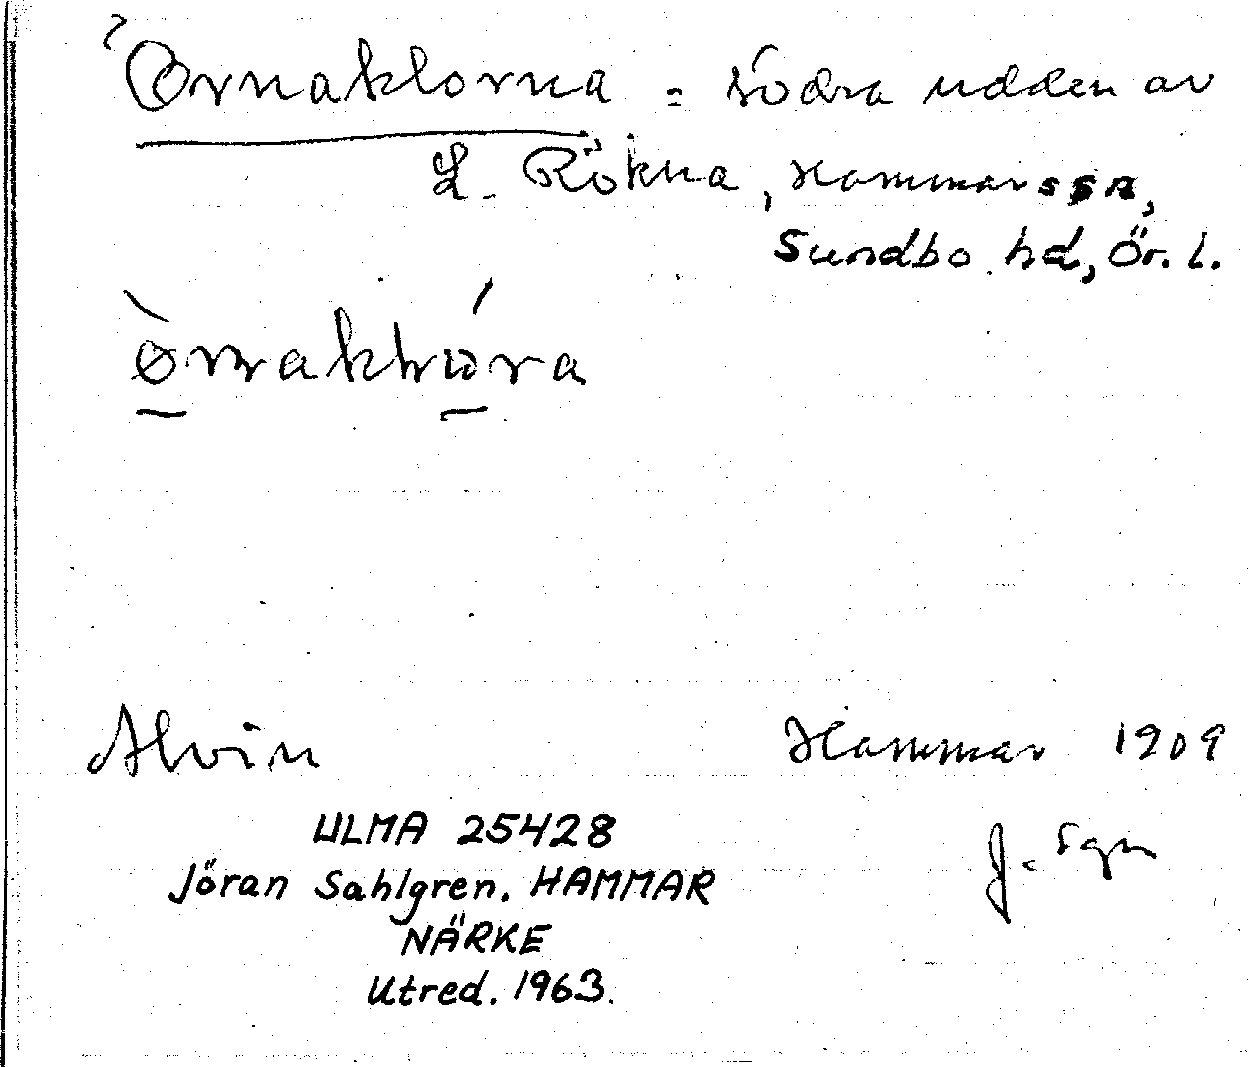 ? Örnaklorna = södra udden av
L. Rökna, Hammars sn,
Sundbo hd, Ör. l.
Alvin Hammar 1909
ULMA 25428 J. Sgn
Jöran Sahlgren. HAMMAR
NÄRKE
Utred. 1963.